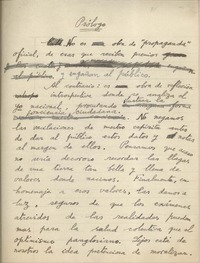 Prólogo
No es obra de "propaganda"
oficial, de esas que reciben premios
y engañar, al público.
Al contrario: es obra de reflexión
introspectiva donde se analiza el
yo nacional,
No negamos
las incitaciones de motus espíritu antes
de dar al público estos datos y notas
al margen de ellos. Pensamos que acaso
no sería decoroso recordar las llagas
de una tierra tan bella y llena de
valores donde nacimos. Finalmente, en
homenaje a esos valores, las damos a
luz, seguros de que los exámenes
atrevidos de las realidades pueden
mas para la salud colectiva que el
optimismo panglosiano. Lejos está de
nosotros la idea pretenciosa de moralizar.